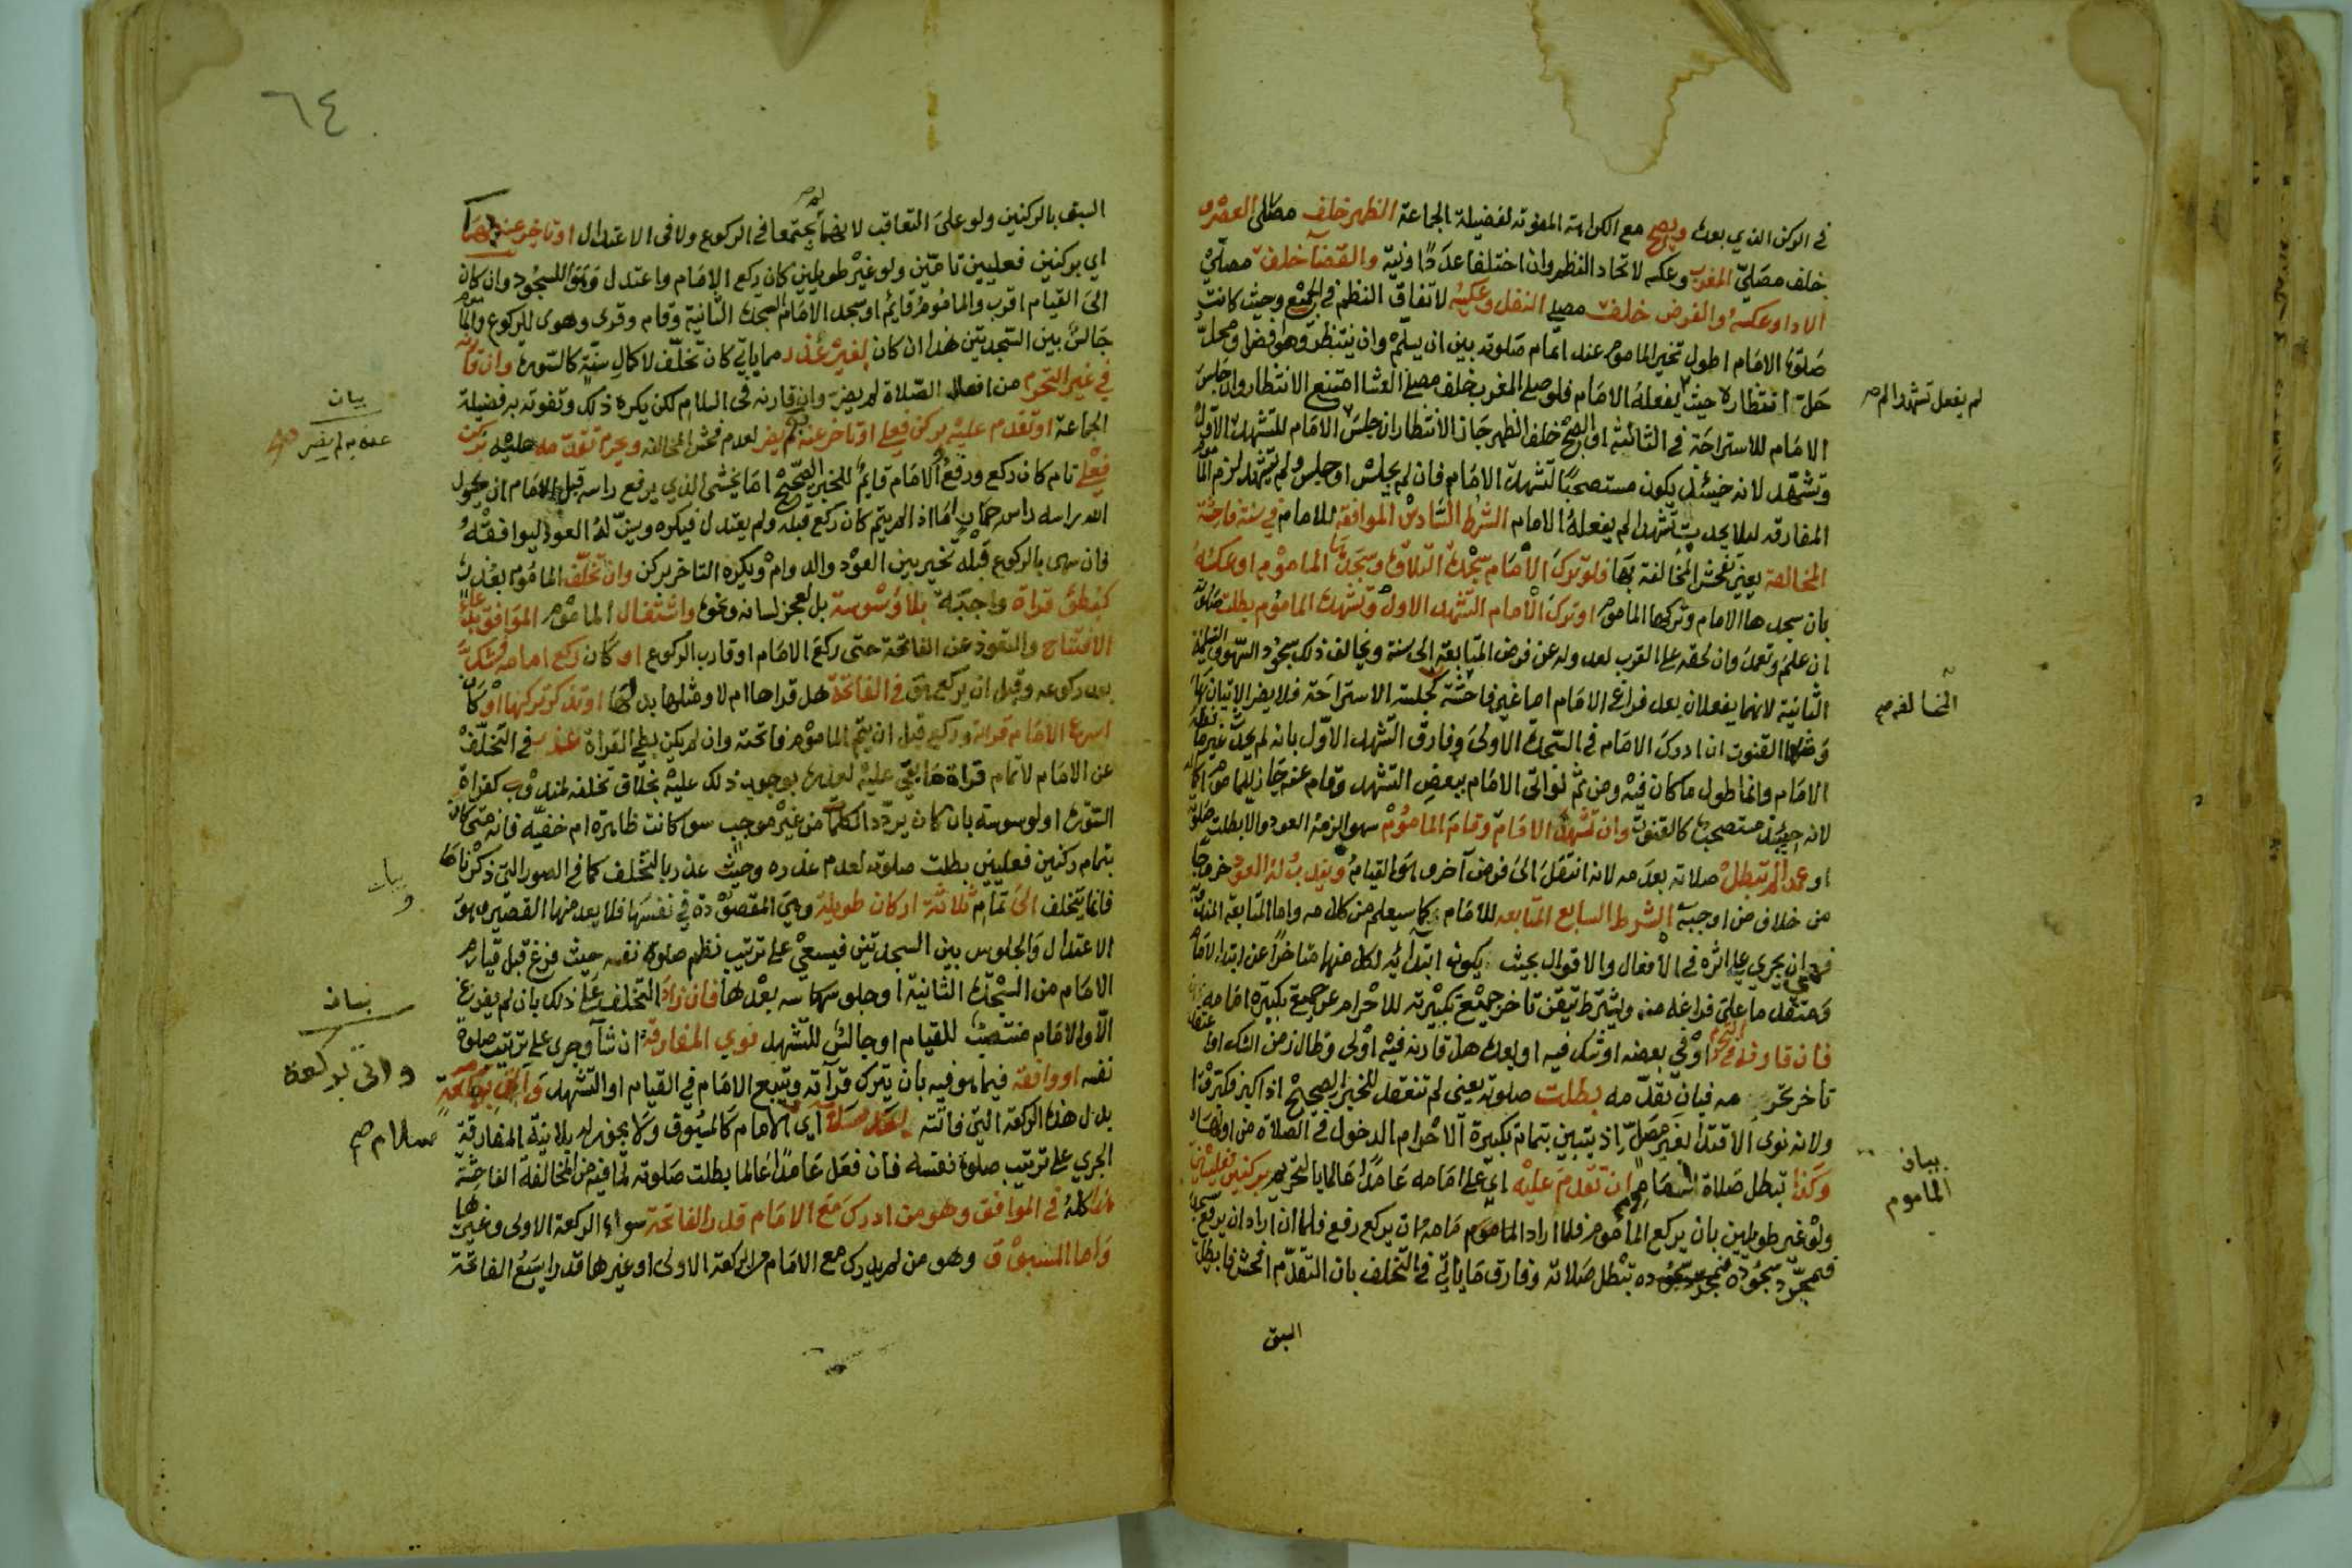 في الركن الذي بعده ويصح مع الكراهة المفوتة لفضيلة الجماعة الظهر خلف مصلي العصر و
خلف مصلي المغرب وعكسه لاتحاد النظم وان اختلفا عددًا ونية والقضآ خلف مصلي
الادا وعكسه والفرض خلف مصلي النفل وعكسه لاتفاق النظم في الجميع وحيث كانت
صلوة الامام اطول تخير الماموم عند اتمام صلوته بين ان يسلم وان ينتظره وهو افضل ومحل
حل انتظاره حيث يفعله الامام فلو صلى المغرب خلف مصلي العشا امتنع الانتظار وان جلس
لم يفعل تشهدا لم صح
الامام للاستراحة في الثالثة او الصبح خلف الظهر جاز الانتظار ان جلس الامام للتشهد الاول
وتشهد لانه حينئذ يكون مستصحبًا لتشهد الامام فان لم يجلس او جلس ولم يتشهد لزم
المفارقه ليلا يحدث تشهدا لم يفعله الامام الشرط السادس الموافقة للامام في سنة فاحشة
المخالفة يعني تفحش المخالفة بها فلو ترك الامام سجدة التلاوة وسجدها الماموم او عكسه
بان سجدها الامام وتركها الماموم او ترك الامام التشهد الاول وتشهده الماموم بطلت صلوته
ان علم وتعمد وان لحقه على القرب لعدوله عن فرض المتابعة الى سنة ويخالف ذلك سجود السهو والتسليمة
الثانية لانهما يفعلان بعد فراغ الامام اما غير فاحشة كجلسة الاستراحة فلا يضر الاتيان بها
المخالفه صح
ومثلها القنوت ان ادرك الامام في السجدة الاولى وفارق التشهد الاول بانه لم يحدث غير ما فعله
الامام وانما طول ما كان فيه ومن ثم لو اتى الامام ببعض التشهد وقام عنه جاز للماموم اكماله
لانه حينئذ مستصحب كالقنوت وان تشهد الامام وقام الماموم سهوا لزمه العود والا بطلت صلوته
او عمدا لم تبطل صلاته بعدمه لانه انتقل الى فرض آخر وهو القيام ويندب له العود خروجا
من خلاف من اوجبه الشرط السابع المتابعه للامام كما سيعلم من كلامه واما المتابعة المندوبة
فهي ان يجري على اثره في الافعال والاقوال بحيث يكون ابتدائه لكل منها متاخرًا عن ابتدا الامام
ومتقدما على فراغه منه ويشترط تيقن تاخر جميع تكبيرته للاحرام عن جميع تكبيرة امامه
فان قارنه في التحرم او في بعضه او شك فيه او بعده هل قارنه فيه اولى وطال زمن الشك او اعتقد
تاخر تحرمه فبان تقدمه بطلت صلوته يعني لم تنعقد للخبر الصحيح اذا كبر فكبروا
ولانه نوى الاقتدا بغير مصل اذ يتبين بتمام تكبيرة الاحرام الدخول في الصلاة من اولها
وكذا تبطل صلاة الماموم ان تقدم عليه اي على امامه عامدًا عالما بالتحريم بركنين فعليين
بيان
الماموم
ولو غير طويلين بان يركع الماموم فلما اراد الماموم امامه ان يركع رفع فلما ان اراد ان يرفع
فبمجرد سجوده فبمجرد سجوده تبطل صلاته وفارق ما ياتي في التخلف بان التقدم افحش فابطل
السبق
٦٤
السبق بالركنين ولو على التعاقب لانهما لم يجتمعا في الركوع ولا في الاعتدال او تاخر عنه بهما
اي بركنين فعليين تامين ولو غير طويلين كان ركع الامام واعتدل وهوى للسجود وان كان
الى القيام اقرب والماموم قايم او سجد الامام السجدة الثانية وقام وقرى وهوى للركوع والماموم
جالس بين السجدتين هذا ان كان لغير عذر مما ياتي كان تخلف لاكمال سنة كالسورة وان قارنه
في غير التحرم من افعال الصلاة لم يضر وان قارنه في السلام لكن يكره ذلك وتفوته به فضيلة
بيان
الجماعة او تقدم عليه بركن فعلي او تاخر عنه به لم يضر لعدم فحش المخالفه ويحرم تقدمه عليه بركن
عنه به لم يضر صح
فعلي تام كان ركع ورفع والامام قايم للخبر الصحيح اما يخشى الذي يرفع راسه قبل الامام ان يحول
الله راسه راس حمار اما اذا لم يتم كان ركع قبله ولم يعتدل فيكره ويسن له العود ليوافقه
فان سهى بالركوع قبله تخير بين العود والدوام ويكره التاخر بركن وان تخلف الماموم بعذر
كبطئ قراة واجبة بلا وسوسة بل لعجز لسانه ونحوه واشتغال الماموم الموافق بدعاء
الافتتاح والتعوذ عن الفاتحة حتى ركع الامام او قارب الركوع او كان ركع امامه فشك
بعد ركوعه وقبل ان يركع هو في الفاتحة هل قراها ام لا ومثلها بدلها او تذكر تركها او كان
اسرع الامام قراته وركع قبل ان يتم الماموم فاتحته وان لم يكن بطي القراة عذر في التخلف
عن الامام لاتمام قراة ما بقي عليه لعذره بوجوب ذلك عليه بخلاف تخلفه لمندوب كقراة
السورة او لوسوسة بان كان يردد الكلمات من غير موجب سوا كانت ظاهرة ام خفيه فانه متى كان
بتمام ركنين فعليين بطلت صلوته لعدم عذره وحيث عذر بالتخلف كما في الصور التي ذكرناها
بيان
فانما يتخلف الى تمام ثلاثة اركان طويلة وهي المقصودة في نفسها فلا يعد منها القصير وهو
الاعتدال والجلوس بين السجدتين فيسعى على ترتيب نظم صلوة نفسه حيث فرغ قبل قيام
الامام من السجدة الثانية او جلوسه بعدها فان زاد التخلف على ذلك بان لم يفرغ
بيان
الا والامام منتصب للقيام او جالس للتشهد نوى المفارقة ان شآ وجرى على ترتيب صلوة
نفسه او وافقه فيما هو فيه بان يترك قرآته ويتبع الامام في القيام او التشهد واتى بركعة
واتى بركعة
بدل هذه الركعة التي فاتته بعد سلام اي الامام كالمسبوق ولا يجوز له بلا نية المفارقة
سلام صح
الجري على ترتيب صلوة نفسه فان فعل عامدًا عالما بطلت صلوته لما فيه من المخالفة الفاحشة
هذا كله في الموافق وهو من ادرك مع الامام قدر الفاتحة سواء الركعة الاولى وغيرها
واما المسبوق وهو من لم يدرك مع الامام من الركعة الاولى او غيرها قدرا يسع الفاتحة